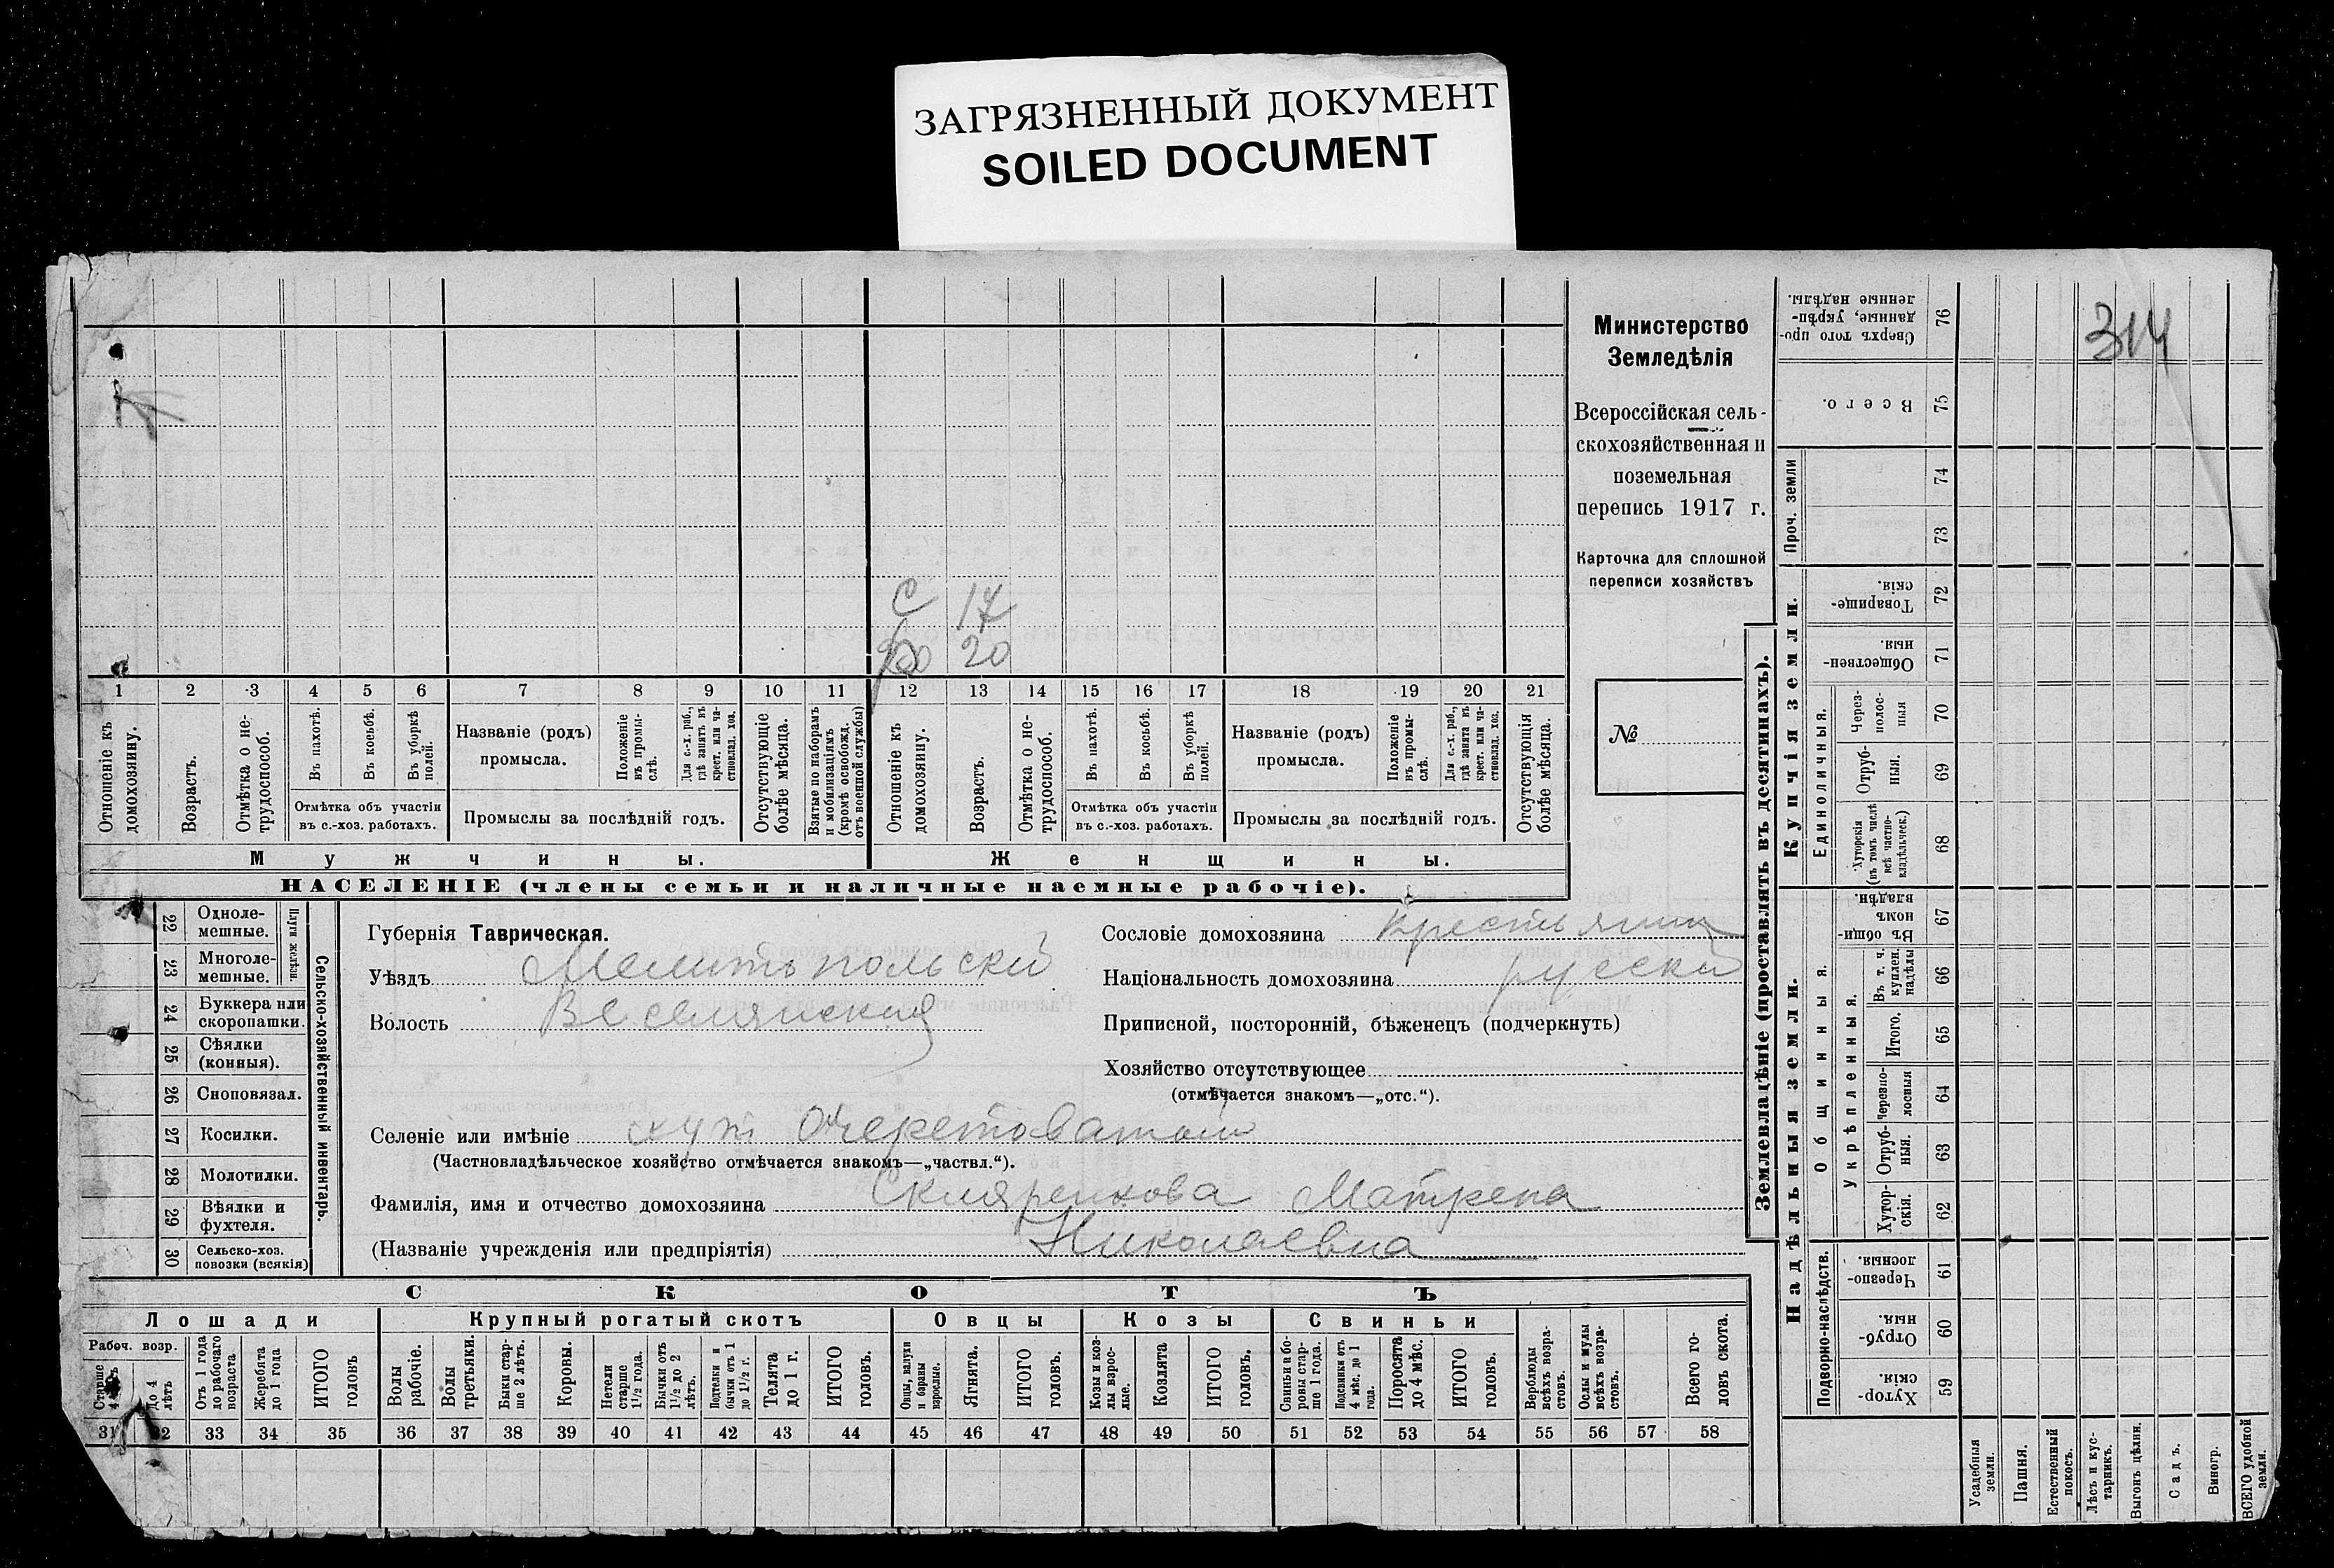 ЗАГРЯЗНЕННЫЙ ДОКУМЕНТ
SOILED DOCUMENT
314
Министерство
Земледѣлія
Всероссійская сель-
скохозяйственная и
поземельная
перепись 1917 г.
Карточка для сплошной
переписи хозяйствъ
№
С 17
20
1 2 3 4 5 6 7 8 9 10 11 12 13 14 15 16 17 18 19 20 21
Отношеніе къ домохозяину.
Возрастъ.
Отмѣтка о не-трудоспособ.
Въ пахотѣ.
Въ косьбѣ.
Въ уборкѣ полей.
Отмѣтка объ участіи
въ с.-хоз. работахъ.
Названіе (родъ)
промысла.
Положеніе въ промы-слѣ.
Для с.-х. раб., гдѣ занятъ въ крест. или ча-стновлад. хоз.
Промыслы за послѣдній годъ.
Отсутствующіе болѣе мѣсяца.
Взятые по наборамъ и мобилизаціямъ (кромѣ освобожд. отъ военной службы)
Отношеніе къ домохозяину.
Возрастъ.
Отмѣтка о не-трудоспособ.
Въ пахотѣ.
Въ косьбѣ.
Въ уборкѣ полей.
Отмѣтка объ участіи
въ с.-хоз. работахъ.
Названіе (родъ)
промысла.
Положеніе въ промы-слѣ.
Для с.-х. раб., гдѣ занята въ крест. или ча-стновлад. хоз.
Промыслы за послѣдній годъ.
Отсутствующія болѣе мѣсяца.
Мужчины.
Женщины.
НАСЕЛЕНІЕ (члены семьи и наличные наемные рабочіе).
Сельско-хозяйственный инвентарь.
Плуги желѣзн.
22 Однолемешные.
23 Многолемешные.
24 Буккера или скоропашки.
25 Сѣялки (конныя).
26 Сноповязал.
27 Косилки.
28 Молотилки.
29 Вѣялки и фухтеля.
30 Сельско-хоз. повозки (всякія)
Губернія Таврическая.
Уѣздъ Мелитопольский
Волость Веселянская
Сословіе домохозяина крестьянин
Національность домохозяина русский
Приписной, посторонній, бѣженецъ (подчеркнуть)
Хозяйство отсутствующее
(отмѣчается знакомъ—„отс.“).
Селеніе или имѣніе хут Очеретоватый
(Частновладѣльческое хозяйство отмѣчается знакомъ—„частвл.“).
Фамилія, имя и отчество домохозяина Скляренкова Матрена
(Названіе учрежденія или предпріятія) Николаевна
СКОТЪ
Лошади
Крупный рогатый скотъ
Овцы
Козы
Свиньи
Рабоч. возр.
Старше
до 4 лѣтъ
Отъ 1 года до рабочаго возраста
Жеребята до 1 года
ИТОГО головъ
Волы рабочіе.
Волы третьяки.
Быки стар-ше 2 лѣтъ.
Коровы.
Нетели старше 1½ года.
Бычки отъ 1½ до 2 лѣтъ.
Подтелки и бычки отъ 1 до 1½ г.
Телята до 1 г.
ИТОГО головъ.
Овцы, валухи и бараны взрослые.
Ягнята.
ИТОГО головъ.
Козы и коз-лы взрос-лые.
Козлята
ИТОГО головъ.
Свиньи и бо-ровы стар-ше 1 года.
Подсвинки отъ 4 мѣс. до 1 года.
Поросята до 4 мѣс.
ИТОГО головъ.
Верблюды всѣхъ возра-стовъ.
Ослы и мулы всѣхъ возра-стовъ.
Всего го-ловъ скота.
31 32 33 34 35 36 37 38 39 40 41 42 43 44 45 46 47 48 49 50 51 52 53 54 55 56 57 58
Землевладѣніе (проставлять въ десятинахъ).
Купчія земли.
Надѣльныя земли.
Сверхъ того про-данные, укрѣп-ленные надѣлы. 76
Всего. 75
Проч. земли
74
73
Товарище-скія. 72
Обществен-ныя 71
Единоличныя.
Через-полос-ныя 70
Отруб-ныя. 69
Хуторскія (въ томъ числѣ всѣ частно-владѣльчес.) 68
Общинныя.
Въ общин-номъ владѣн. 67
Укрѣпленныя.
Въ т. ч. куплен. надѣлы 66
Итого. 65
Черезпо-лосныя 64
Отруб-ныя. 63
Хутор-скія. 62
Подворно-наслѣдств.
Черезпо-лосныя 61
Отруб-ныя. 60
Хутор-скія. 59
Усадебныя земли.
Пашня.
Естественный покосъ.
Лѣсъ и кус-тарникъ.
Выгонъ цѣлин.
Садъ.
Виногр.
ВСЕГО удобной земли.